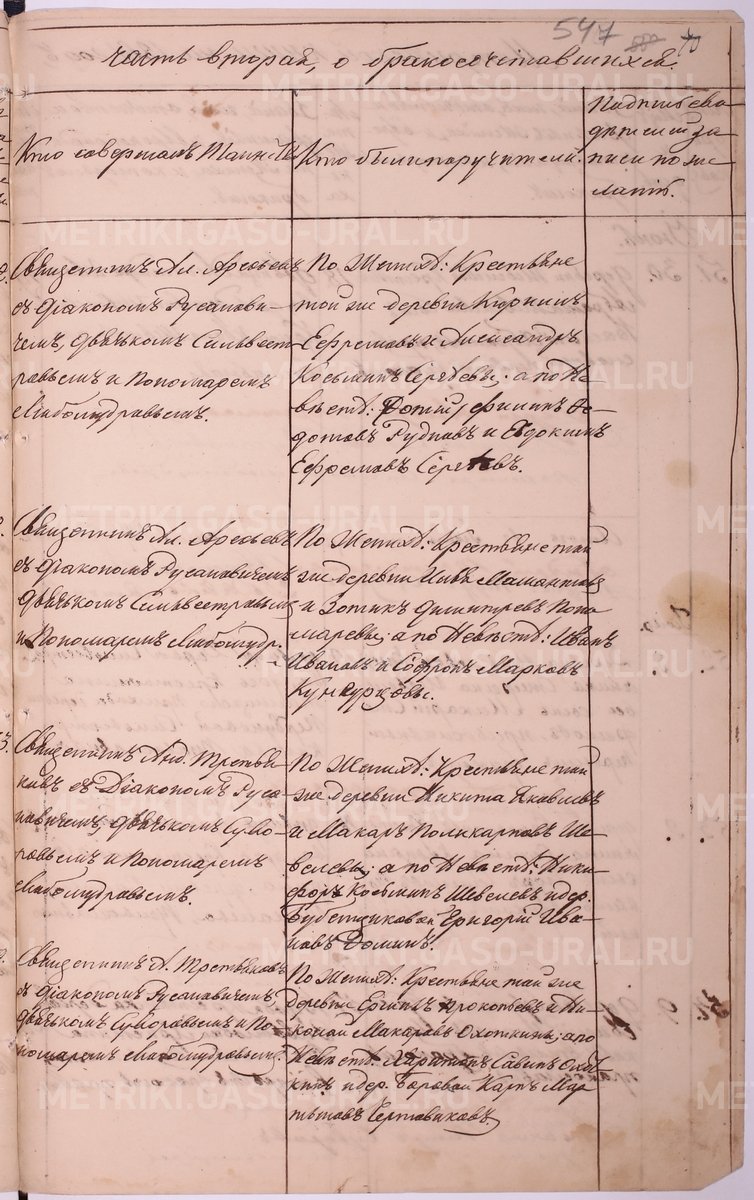 547
часть вторая, о бракосочетавшихся.
Кто совершалъ Таинство
Кто были поручители.
Подпись сви
дѣтелей за
писи по же
ланію.
Священникъ Ал. Арсеньевъ
съ Діакономъ Русанови-
чемъ, дьячкомъ Сильвест-
ровымъ и Пономаремъ
Любомудровымъ.
По Женихѣ: Крестьяне
той же деревни
Ефремовъ и Александръ
Козьминъ Сергѣевы; а по Не-
вѣстѣ: Ѳе-
дотовъ и Евдокимъ
Ефремовъ Сергѣевъ.
Священникъ Ал. Арсеньевъ
съ Діакономъ Русановичемъ
дьячкомъ Сильвестровымъ
и Пономаремъ Любомудр.
По Женихѣ: Крестьяне той
же деревни Мамонтовъ
и Зотикъ Димитріевъ Поно
маревы; а по Невѣстѣ: Иванъ
Ивановъ и Софронъ Марковъ
Кунгурцовы.
Священникъ Анд. Третья
ковъ съ Діакономъ Руса
новичемъ, дьячкомъ Суво-
ровымъ и Пономаремъ
Любомудровымъ.
По Женихѣ: Крестьяне той
же деревни Никита Яковлевъ
и Макаръ Поликарповъ Ше-
велевы; а по Невѣстѣ: Ники-
форъ Козьминъ Шевелевъ и дер.
Бубенщиковой Григорій Ива-
новъ Доминъ.
Священникъ А. Третьяковъ
съ Діакономъ Русановичемъ,
дьячкомъ Суворовымъ и По
номаремъ Любомудровымъ
По Женихѣ: Крестьяне той же
деревни Прокопьевъ и Ни-
колай Макаровъ Охоткины; а по
Невѣстѣ: Харитонъ Савинъ
и дер. Боровой Карпъ Мар
тыновъ
METRIKI.GASO-URAL.RU
METRIKI.GASO-URAL.RU
METRIKI.GASO-URAL.RU
METRIKI.GASO-URAL.RU
METRIKI.GASO-URAL.RU